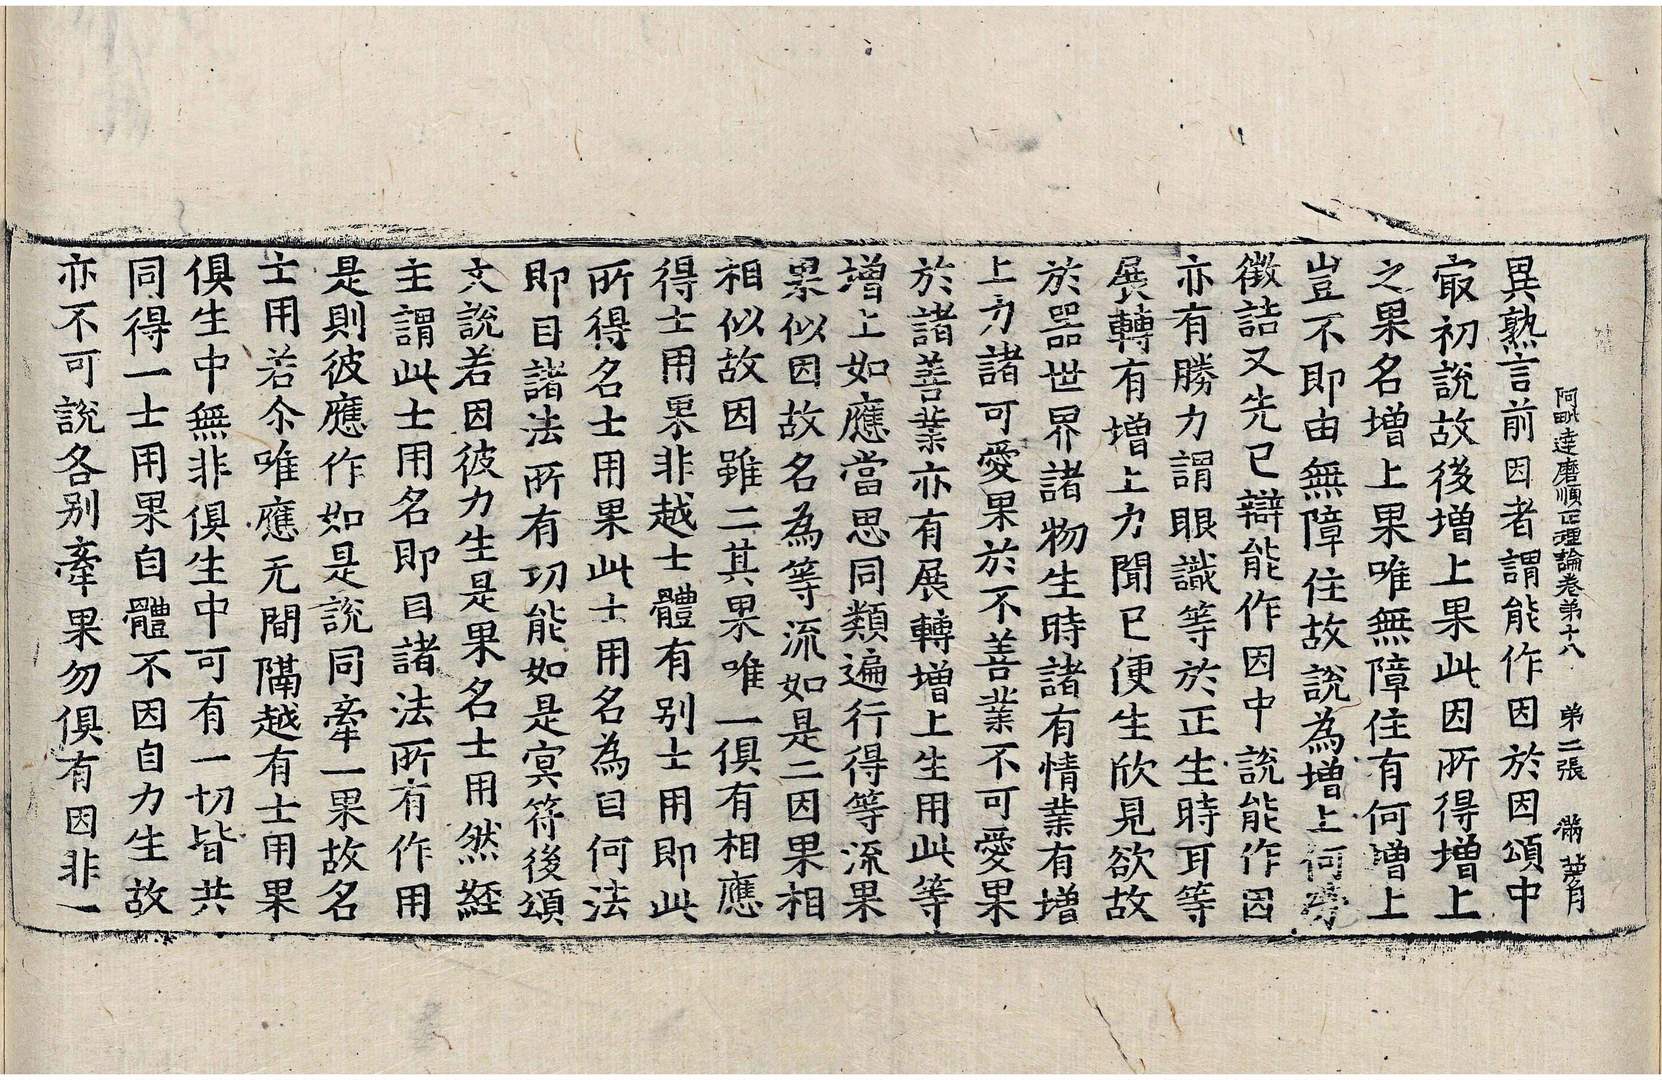 阿毗達磨順正理論卷弟十八　弟二張　滿
異熟言前因者謂能作因於因頌中
㝡初說故後增上果此因所得增上
之果名增上果唯無障住有何增上
豈不即由無障住故說為增上何勞
徵詰又先已辯能作因中說能作因
亦有勝力謂眼識等於正生時耳等
展轉有增上力聞已便生欣見欲故
於器世界諸物生時諸有情業有增
上力諸可愛果於不善業不可愛果
於諸善業亦有展轉增上生用此等
增上如應當思同類遍行得等流果
果似因故名為等流如是二因果相
相似故因雖二其果唯一俱有相應
得士用果非越士體有別士用即此
所得名士用果此士用名為目何法
即目諸法所有功能如是冥符後頌
文說若因彼力生是果名士用然經
主謂此士用名即目諸法所有作用
是則彼應作如是說同牽一果故名
士用若尒唯應无間隔越有士用果
俱生中無非俱生中可有一切皆共
同得一士用果自體不因自力生故
亦不可說各別牽果勿俱有因非一